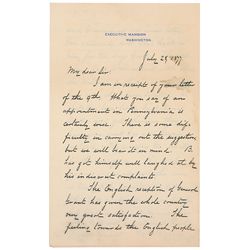 EXECUTIVE MANSION
WASHINGTON
July 29, 1877
My dear Sir:
I am in receipt of your letter
of the 9th What you say of our
appointment in Pennsylvania, is
certainly wise. There is some dif-
ficulty in carrying out the suggestion
but we will bear it in mind. B.
has got himself well laughed at by
his indiscreet complaints.
The English reception of General
Grant has given the whole country
very great satisfaction. The
feeling towards the English people